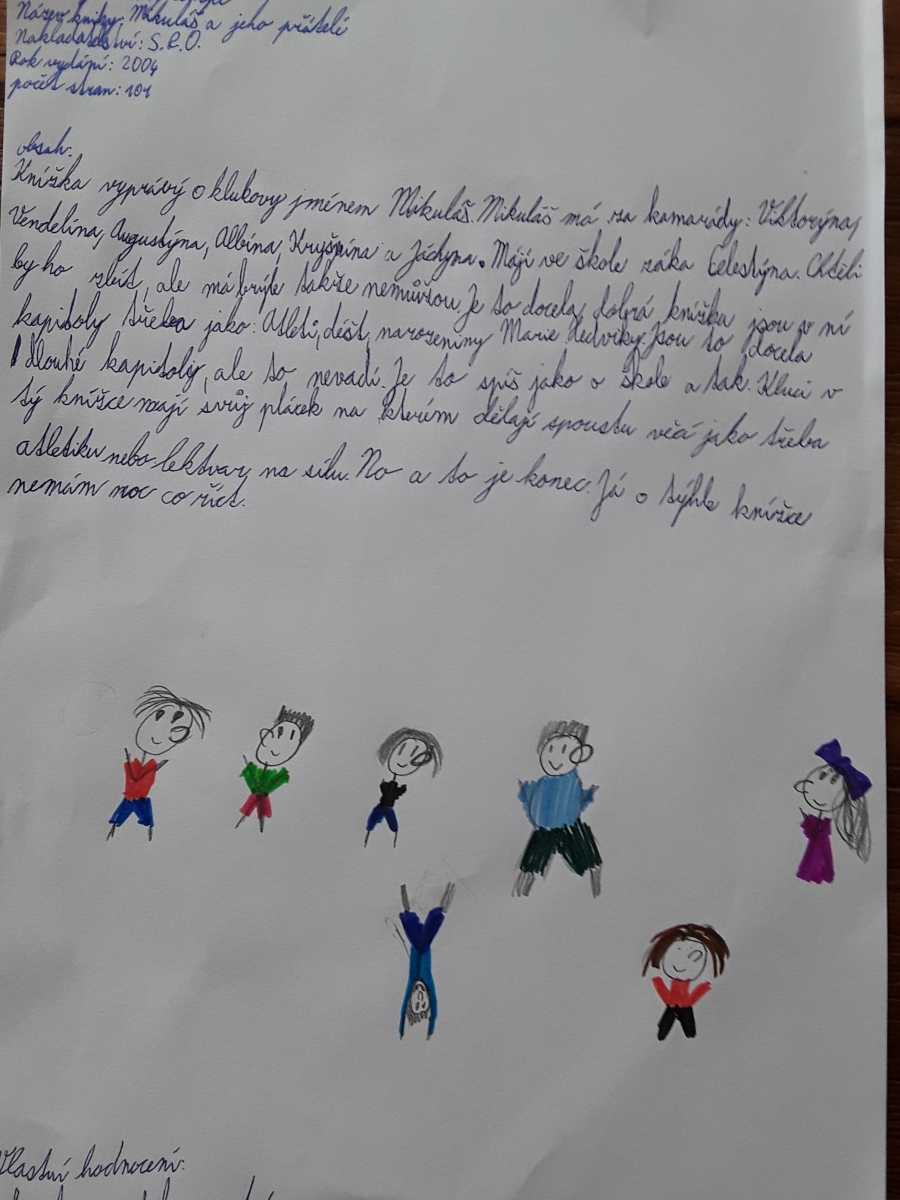 Název knihy: Mikuláš a jeho přátelé
Nakladatelství: S.R.O.
Rok vydání: 2004
počet stran: 101
obsah:
Knížka vyprávý o klukovy jménem Mikuláš. Mikuláš má za kamarády: Viktorýna,
Vendelína, Augustýna, Albína, Kryšpína a Jáchyna. Májí ve škole žáka Celestýna. Chtěli
by ho zbít, ale má brýle takže nemůžou. Je to docela dobrá knížka jsou v ní
kapitoly třeba jako: Atleti, déšť, narozeniny Marie Hedviky. Jsou to docela
dlouhé kapitoly, ale to nevadí. Je to spíš jako o škole a tak. Kluci v
tý knížce mají svůj plácek na kterém dělají spoustu věcí jako třeba
atletiku nebo lektvar na sílu. No a to je konec. Já o týhle knížce
nemám moc co říct.
Vlastní hodnocení: